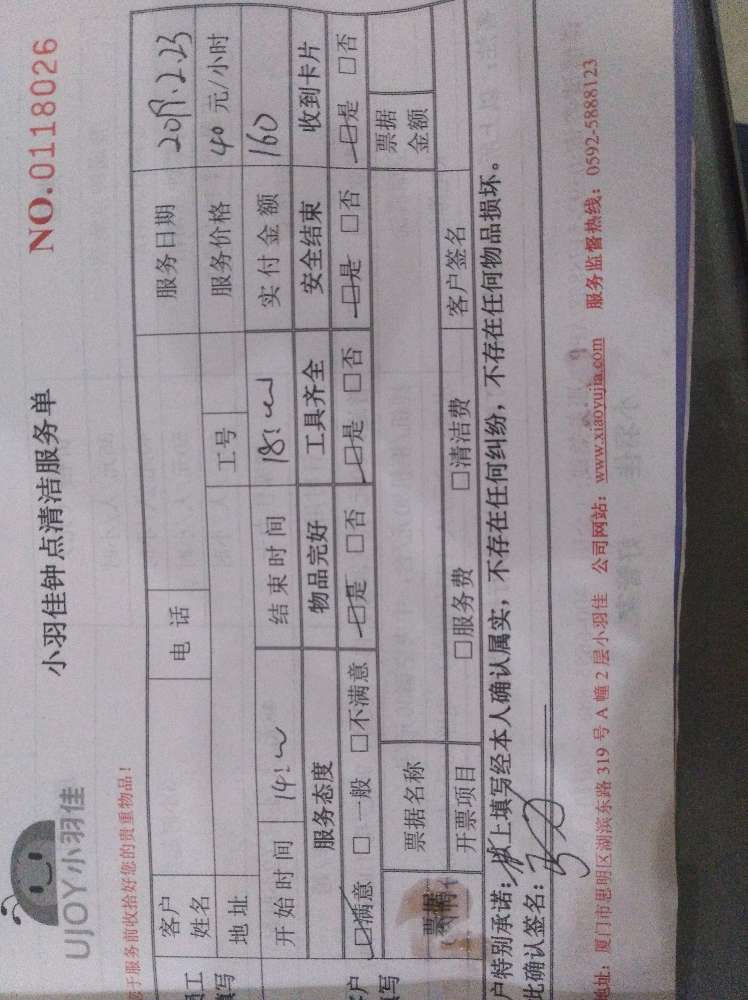 UJOY小羽佳
小羽佳钟点清洁服务单
NO.0118026
于服务前收拾好您的贵重物品！
客户姓名 电话 服务日期 2019.2.23
地址 工号 服务价格 40 元/小时
开始时间 14:00 结束时间 18:00 实付金额 160
服务态度 物品完好 工具齐全 安全结束 收到卡片
□满意 □一般 □不满意 □是 □否 □是 □否 □是 □否 □是 □否
填写
票据名称 票据金额
开票项目 □服务费 □清洁费 客户签名
户特别承诺：以上填写经本人确认属实，不存在任何纠纷，不存在任何物品损坏。
此确认签名：
地址：厦门市思明区湖滨东路 319 号 A 幢 2 层小羽佳 公司网站：www.xiaoyujia.com 服务监督热线：0592-5888123